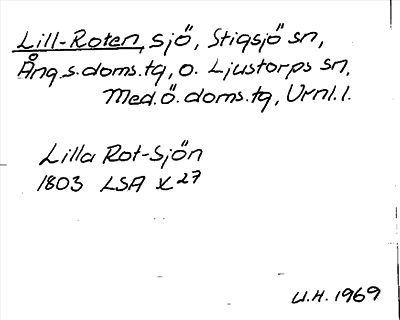 Lill-Roten, sjö, Stigsjö sn,
Ång.s.doms.tg, o. Ljustorps sn,
Med.ö.doms.tg, Urnl.l.
Lilla Rot-Sjön
1803 LSA X 27
U.H. 1969